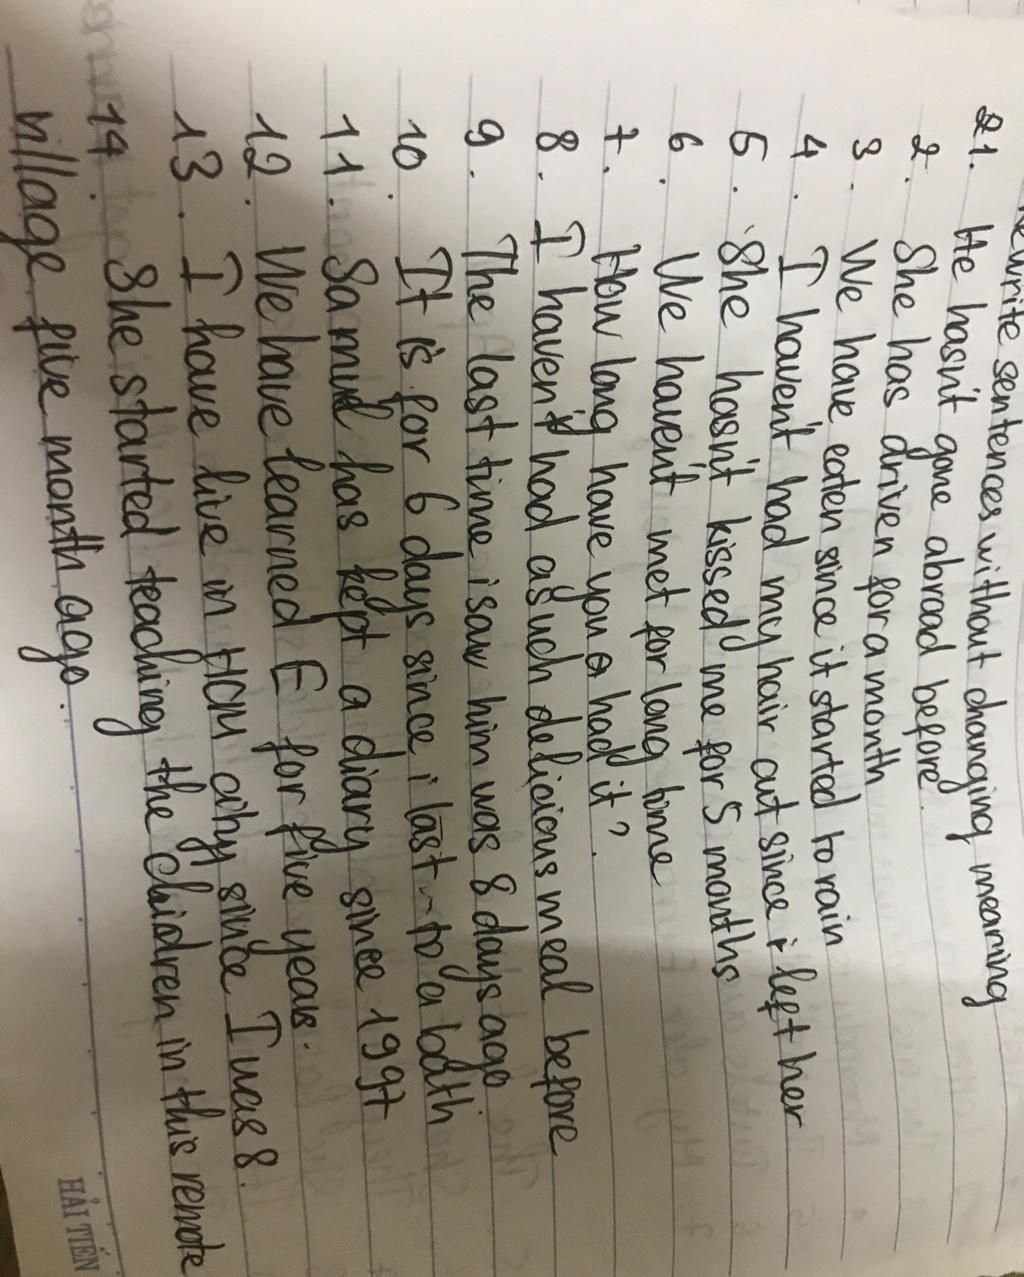 Rewrite sentences without changing meaning
21. He hasn't gone abroad before.
2. She has driven for a month
3. We have eaten since it started to rain
4. I haven't had my hair cut since i left her
5. She hasn't kissed me for 5 months
6. We haven't met for long time
7. How long have you had it?.
8. I haven't had a such delicious meal before
9. The last time i saw him was 8 days ago
10. It is for 6 days since i last to a bath
11. has kept a diary since 1997
12. We have learned E for five years.
13. I have live in HCM city since I was 8.
14. She started teaching the chidren in this remote
village five month ago.
HẢI TIẾN